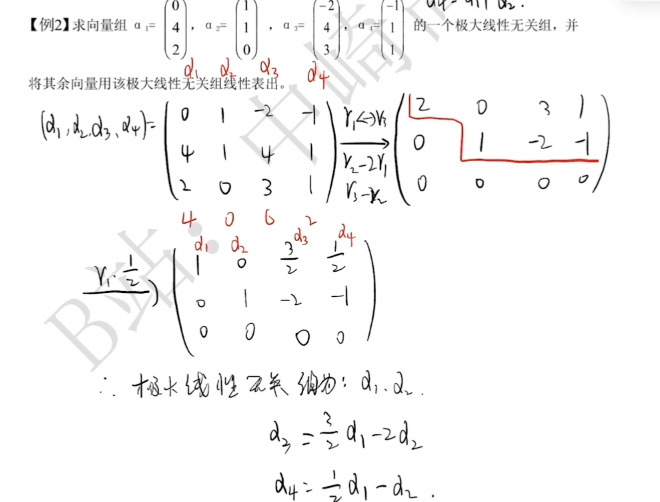 α₄=α₁+α₂.
【例2】求向量组 α₁=(0 4 2), α₂=(1 1 0), α₃=(-2 4 3), α₄=(-1 1 1) 的一个极大线性无关组，并
将其余向量用该极大线性无关组线性表出。
α₁ α₂ α₃ α₄
(α₁,α₂,α₃,α₄)=
0 1 -2 -1
4 1 4 1
2 0 3 1
r₁↔r₃
r₂-2r₁
r₃-r₂
2 0 3 1
0 1 -2 -1
0 0 0 0
4 0 6 2
r₁·1/2
α₁ α₂ α₃ α₄
1 0 3/2 1/2
0 1 -2 -1
0 0 0 0
∴ 极大线性无关组为: α₁, α₂.
α₃=3/2α₁-2α₂
α₄=1/2α₁-α₂.
B站: